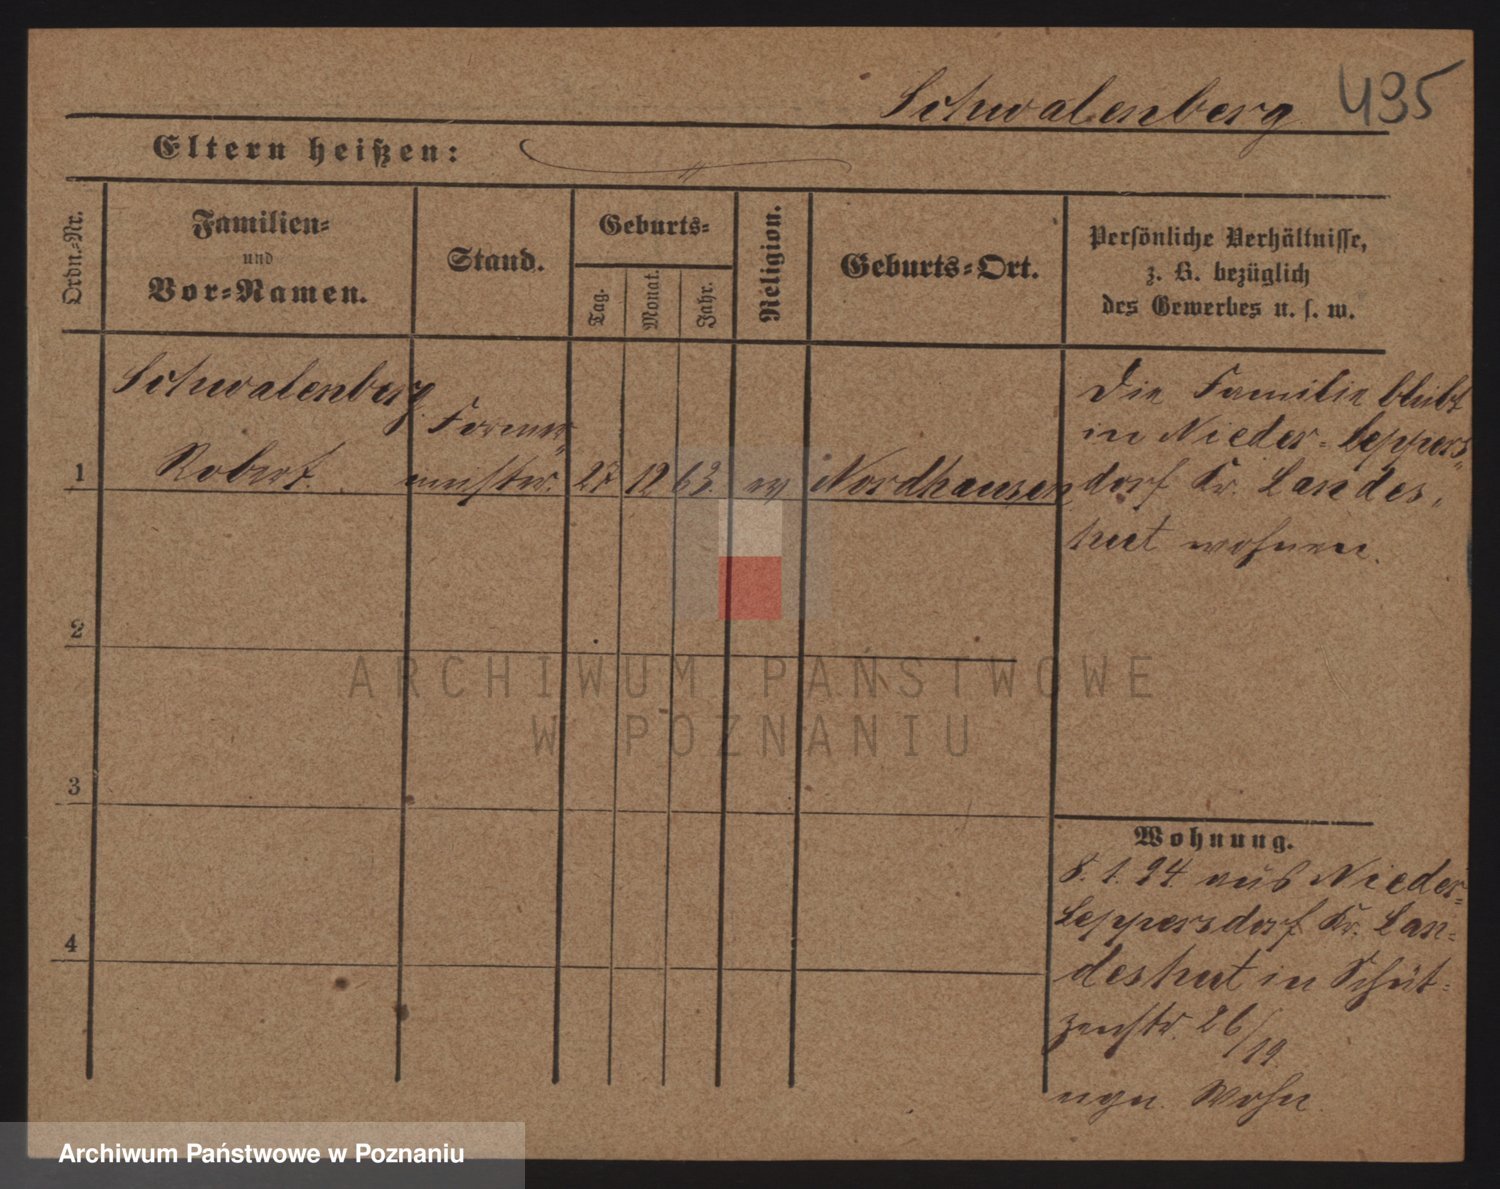 Schwalenberg 495
Eltern heißen:
Ordn.-Nr.
Familien-
und
Vor-Namen.
Stand.
Geburts-
Tag.
Monat.
Jahr.
Religion.
Geburts-Ort.
Persönliche Verhältnisse,
z. B. bezüglich
des Gewerbes u. s. w.
1
Schwalenberg
Robert.
Former-
meister.
27
12
63.
ev
Nordhausen
Die Familie bleibt
in Nieder-Leppers-
dorf Kr. Landes-
hut wohnen.
2
3
4
Wohnung.
8. 1. 94. aus Nieder-
Leppersdorf Kr. Lan-
deshut in Schüt-
zenstr. 26/19.
Wohn.
ARCHIWUM PAŃSTWOWE
W POZNANIU
Archiwum Państwowe w Poznaniu